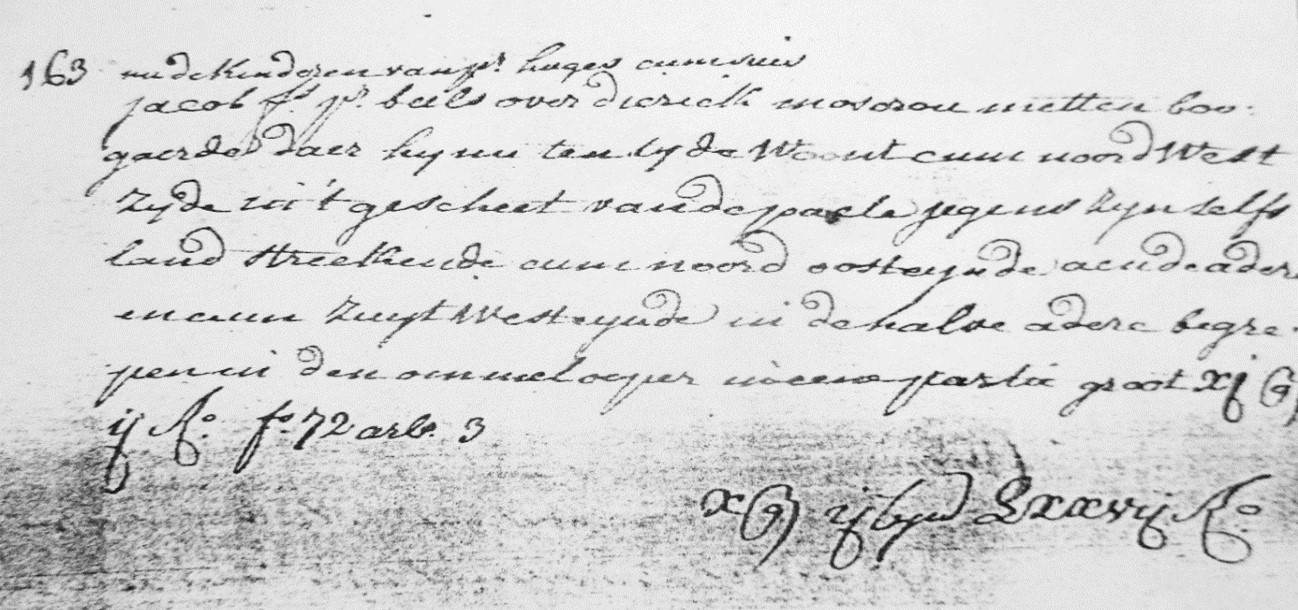 163 nu de kinderen van pr. huges cum suis
jacob fs. pr. beils over dierick mosorou metten boo:
gaerde daer hij nu ten tyde Woont cum noord West
Zyde in't gescheet vande parcele jegens Zyn selfs
land streckende cum noord oosteynde aen de adere
en cum Zuyt Westeynde in de halve adere begre:
pen in den ommelooper in eene partie groot xj G
ij Ro. fo. 72 arte. 3
x G ij lynd Lxxvij Ro.